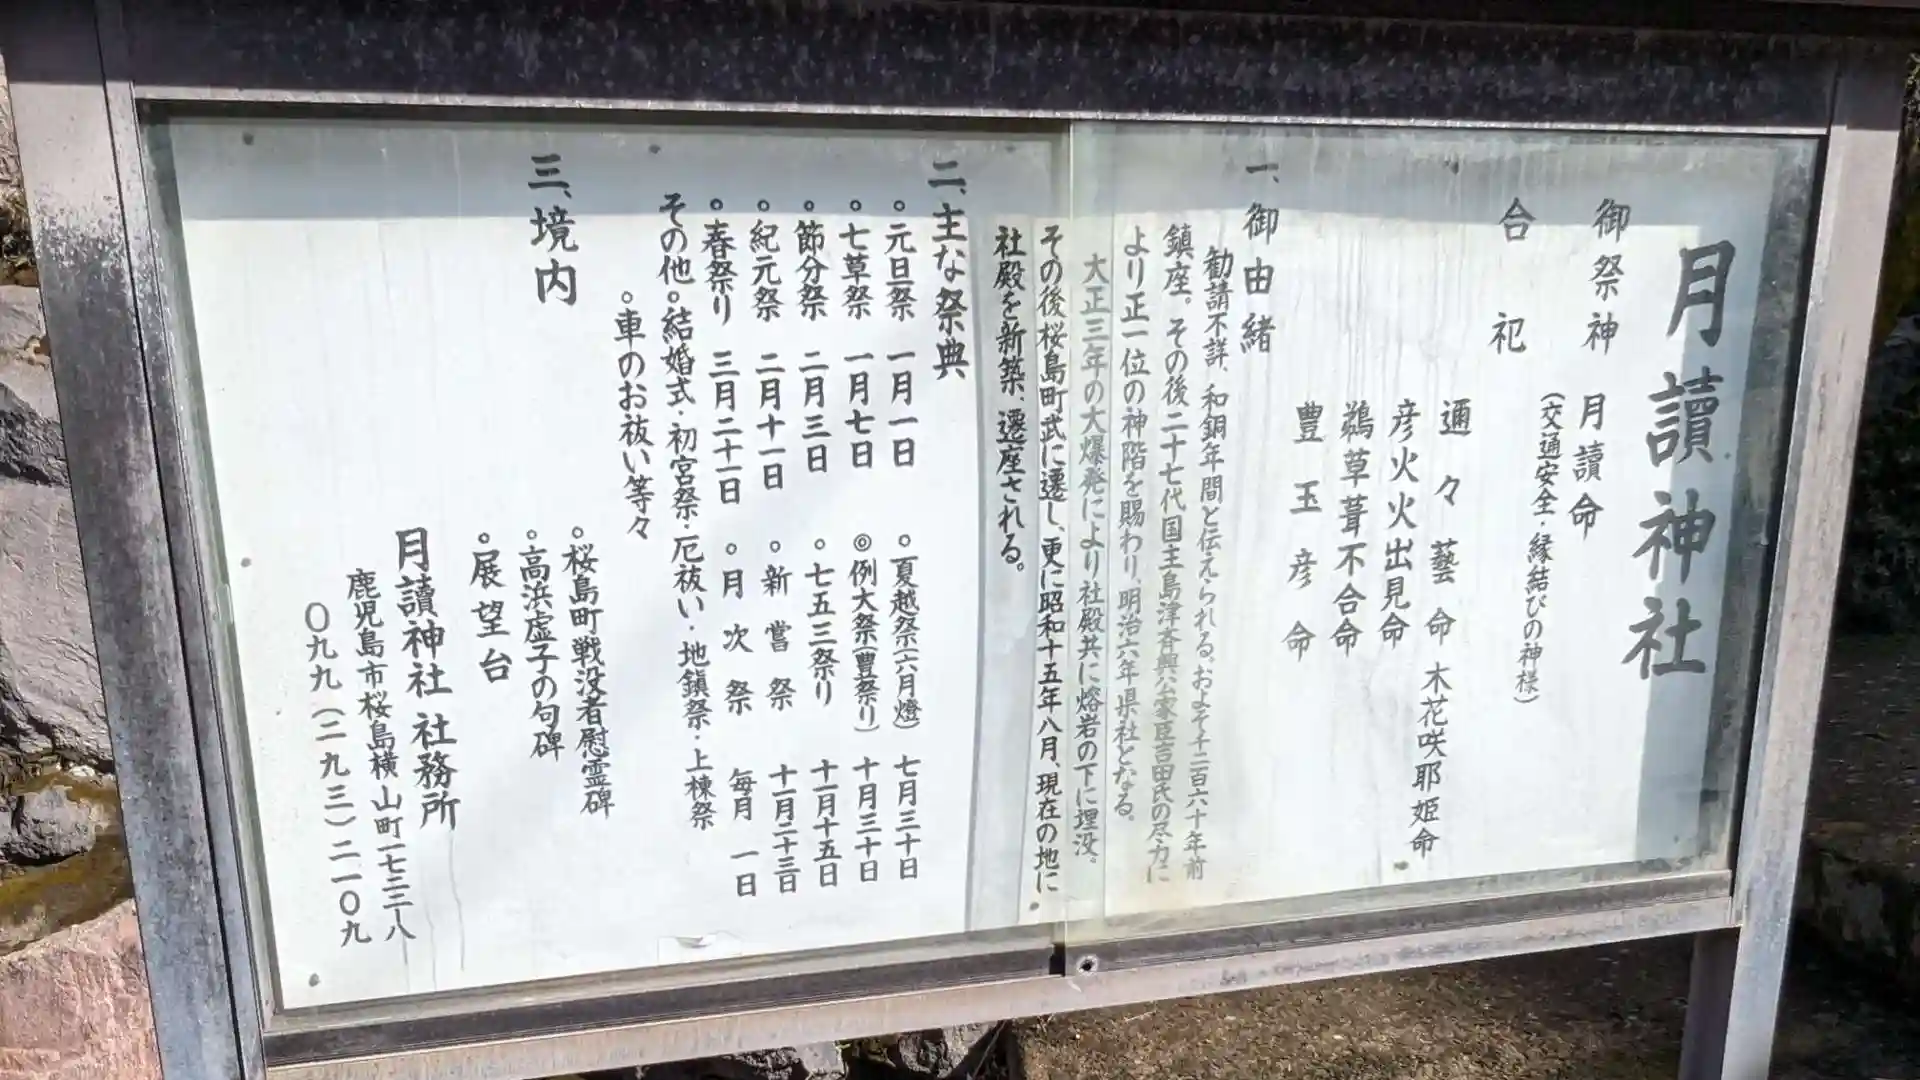 月讀神社
御祭神 月讀命
(交通安全・縁結びの神様)
合祀 邇々藝命 木花咲耶姫命
彦火火出見命
鵜草葺不合命
豊玉彦命
一、御由緒
勧請不詳、和銅年間と伝えられる。およそ千二百六十年前
鎮座。その後二十七代国主島津斉興公家臣吉田氏の尽力に
より正一位の神階を賜わり、明治六年県社となる。
大正三年の大爆発により社殿共に熔岩の下に埋没。
その後桜島町武に遷し、更に昭和十五年八月、現在の地に
社殿を新築、遷座される。
二、主な祭典
◦元旦祭 一月一日 ◦夏越祭(六月燈) 七月三十日
◦七草祭 一月七日 ◎例大祭(豊祭り) 十月三十日
◦節分祭 二月三日 ◦七五三祭り 十一月十五日
◦紀元祭 二月十一日 ◦新嘗祭 十一月二十三日
◦春祭り 三月二十一日 ◦月次祭 毎月一日
その他◦結婚式・初宮祭・厄祓い・地鎮祭・上棟祭
◦車のお祓い等々
三、境内
◦桜島町戦没者慰霊碑
◦高浜虚子の句碑
◦展望台
月讀神社 社務所
鹿児島市桜島横山町一七二二八
〇九九(二九三)二一〇九